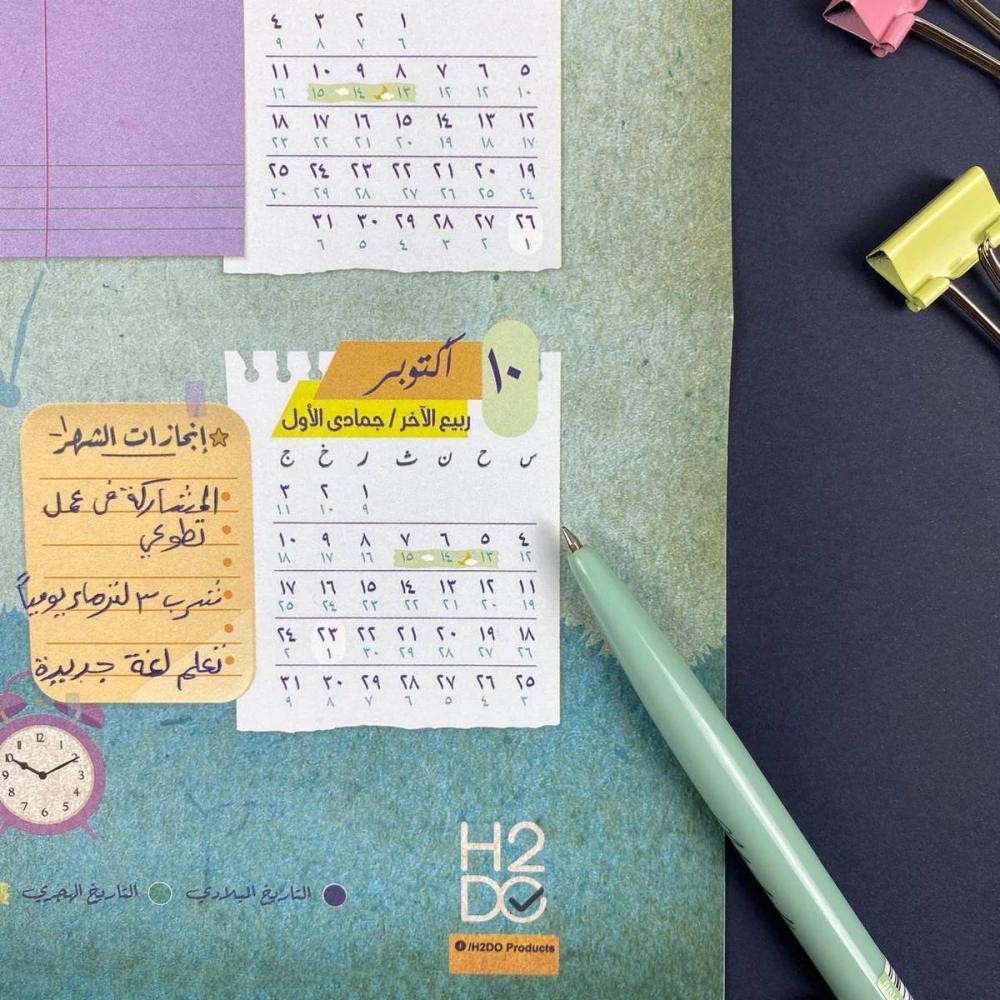 ١ ٢ ٣ ٤
٦ ٧ ٨ ٩
٥ ٦ ٧ ٨ ٩ ١٠ ١١
١٠ ١٢ ١٢ ١٣ ١٤ ١٥ ١٦
١٢ ١٣ ١٤ ١٥ ١٦ ١٧ ١٨
١٧ ١٨ ١٩ ٢٠ ٢١ ٢٢ ٢٣
١٩ ٢٠ ٢١ ٢٢ ٢٣ ٢٤ ٢٥
٢٤ ٢٥ ٢٦ ٢٧ ٢٨ ٢٩ ٣٠
٢٦ ٢٧ ٢٨ ٢٩ ٣٠ ٣١
١ ٢ ٣ ٤ ٥ ٦
١٠ أكتوبر
ربيع الآخر / جمادى الأول
س ح ن ث ر خ ج
١ ٢ ٣
٩ ١٠ ١١
٤ ٥ ٦ ٧ ٨ ٩ ١٠
١٢ ١٣ ١٤ ١٥ ١٦ ١٧ ١٨
١١ ١٢ ١٣ ١٤ ١٥ ١٦ ١٧
١٩ ٢٠ ٢١ ٢٢ ٢٣ ٢٤ ٢٥
١٨ ١٩ ٢٠ ٢١ ٢٢ ٢٣ ٢٤
٢٦ ٢٧ ٢٨ ٢٩ ٣٠ ١ ٢
٢٥ ٢٦ ٢٧ ٢٨ ٢٩ ٣٠ ٣١
٣ ٤ ٥ ٦ ٧ ٨ ٩
إنجازات الشهر:-
المشاركة فى عمل
تطوعي
نشرب ٣ لتر ماء يومياً
نتعلم لغة جديدة
12 1 2 3 4 5 6 7 8 9 10 11
التاريخ الميلادي
التاريخ الهجري
H2
DO
/H2DO Products